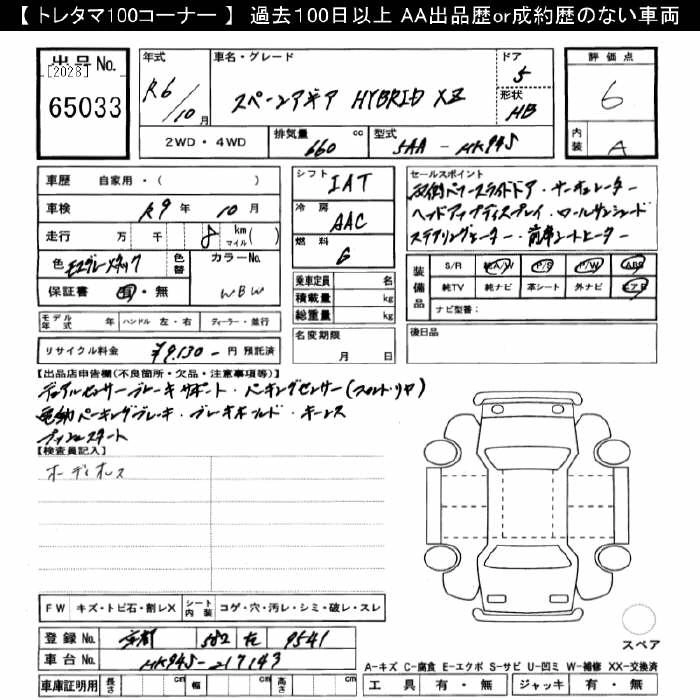 【 トレタマ100コーナー 】 過去100日以上 AA出品歴or成約歴のない車両
出品No.
[2028]
65033
年式
R6/10月
車名・グレード
スペーシアギア HYBRID XZ
ドア
5
形状
HB
評価点
6
内装
A
2WD・4WD
排気量
660 cc
型式
5AA - MK94S
車歴 自家用・( )
車検 R9年 10月
走行 万 千 8 km マイル( )
色
色替
カラーNo.
WBW
保証書 有・無
モデル年式 年 ハンドル 左・右 ディーラー・並行
リサイクル料金 ¥9,130- 円 預託済
シフト
IAT
冷房
AAC
燃料
G
乗車定員 名
積載量 kg
総重量 kg
名変期限
月 日
セールスポイント
両側パワースライドドア・サーキュレーター
ヘッドアップディスプレイ・ロールサンシェード
ステアリングヒーター・前席シートヒーター
装備品
S/R 純A/W P/S P/W ABS
純TV 純ナビ 革シート 外ナビ エアB
ナビ型番:
後日品
【出品店申告欄(不良箇所・欠品・注意事項等)】
デュアルセンサーブレーキサポート・パーキングセンサー(フロント・リヤ)
電動パーキングブレーキ・ブレーキホールド・キーレス
プッシュスタート
【検査員記入】
オーディオレス
FW キズ・トビ石・割レX シート内装 コゲ・穴・汚レ・シミ・破レ・スレ
登録No. 京都 582 9541
車台No. MK94S-217143
車庫証明用 長さ cm 幅 cm 高さ cm
スペア
A-キズ C-腐食 E-エクボ S-サビ U-凹ミ W-補修 XX-交換済
工具 有・無 ジャッキ 有・無